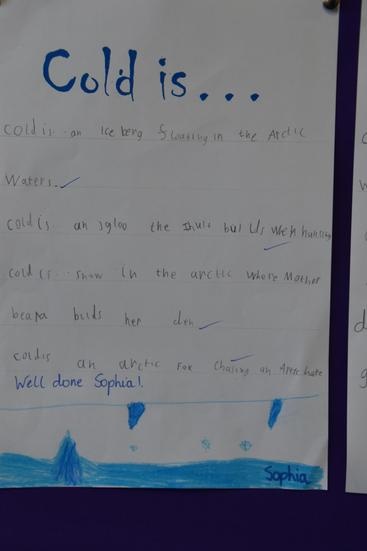 Cold is...
cold is an Ice berg floating in the Arctic
Waters.
cold is an igloo the Inuis buil Us when hunting
cold is... snow in the arctic where Mother
beara buids her den
coldis an arctic Fox Chasing an Aretc hare
Well done Sophia!.
Sophia